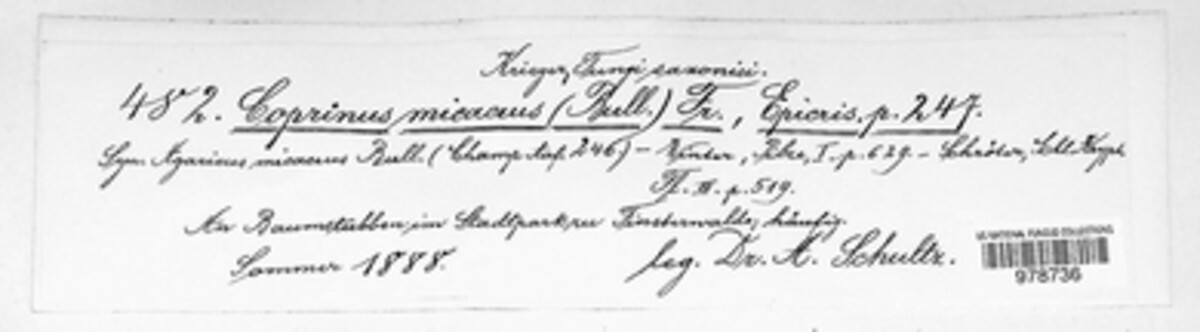 Krieger, Fungi saxonici.
482. Coprinus micaceus (Bull.) Fr., Epicris. p. 247.
Syn. Agaricus micaceus Bull. (Champ. taf. 246) – Winter, Pilze, I. p. 629. – Schröter, Schl. Krypt.
Fl. III. p. 519.
An Baumstubben im Stadtpark zu Finsterwalde, häufig.
Sommer 1888.
leg. Dr. A. Schultz.
US NATIONAL FUNGUS COLLECTIONS
978736